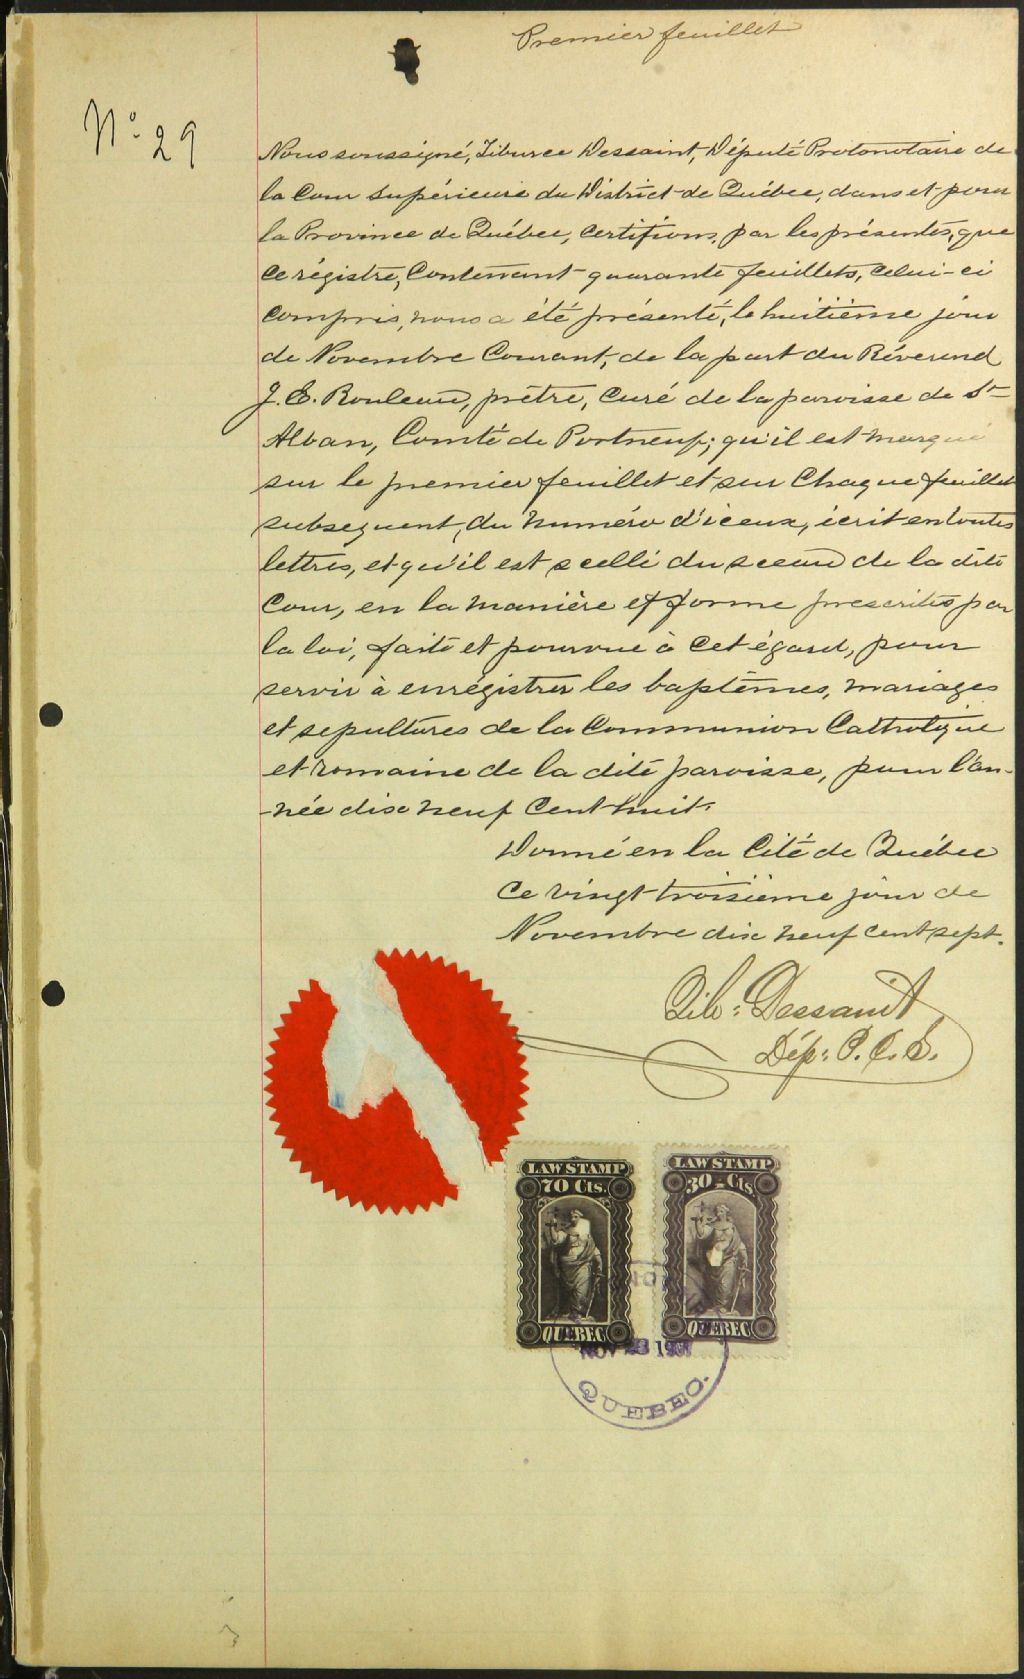 Premier feuillet
No 29
Nous soussigné, Tiburce Dessaint, Député Protonotaire de
la Cour Supérieure du District de Québec, dans et pour
la Province de Québec, certifions, par les présentes, que
ce régistre, Contenant quarante feuillets, celui-ci
compris, nous a été présenté, le huitième jour
de Novembre Courant, de la part du Révérend
J. E. Rouleau, prêtre, Curé de la paroisse de St
Alban, Comté de Portneuf; qu'il est marqué
sur le premier feuillet et sur Chaque feuillet
subsequent, du numéro d'iceux, écrit en toutes
lettres, et qu'il est scellé du sceau de la dite
Cour, en la manière et forme prescrites par
la loi, faite et pourvue à cet égard, pour
servir à enrégistrer les baptêmes, mariages
et sepultures de la Communion Catholique
et romaine de la dite paroisse, pour l'an-
-née dix neuf Cent huit.
Donné en la Cité de Québec
Ce vingt-troisième jour de
Novembre dix neuf cent sept.
Tib: Dessaint
Dép: P. C. S.
LAW STAMP
70 Cts.
QUEBEC
LAW STAMP
30-Cts
QUEBEC
NOV 23 1907
QUEBEC.